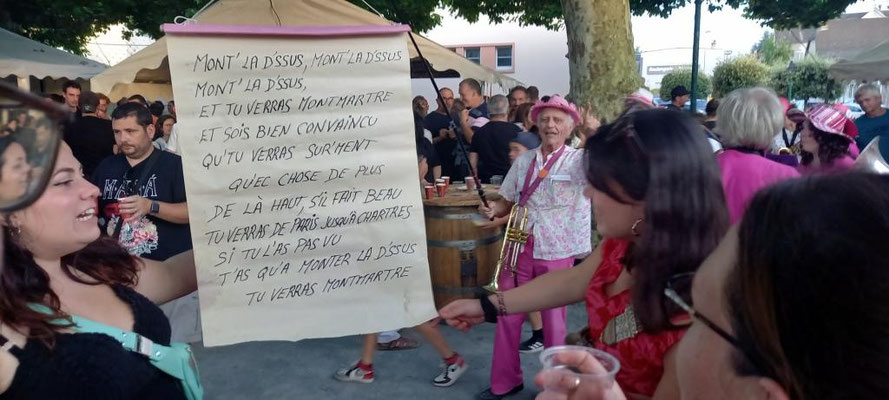 MONT' LA D'SSUS, MONT' LA D'SSUS
MONT' LA D'SSUS,
ET TU VERRAS MONTMARTRE
ET SOIS BIEN CONVAINCU
QU'TU VERRAS SUR'MENT
QU'EC CHOSE DE PLUS
DE LÀ HAUT, S'IL FAIT BEAU
TU VERRAS DE PARIS JUSQU'À CHARTRES
SI TU L'AS PAS VU
T'AS QU'A MONTER LA D'SSUS
TU VERRAS MONTMARTRE